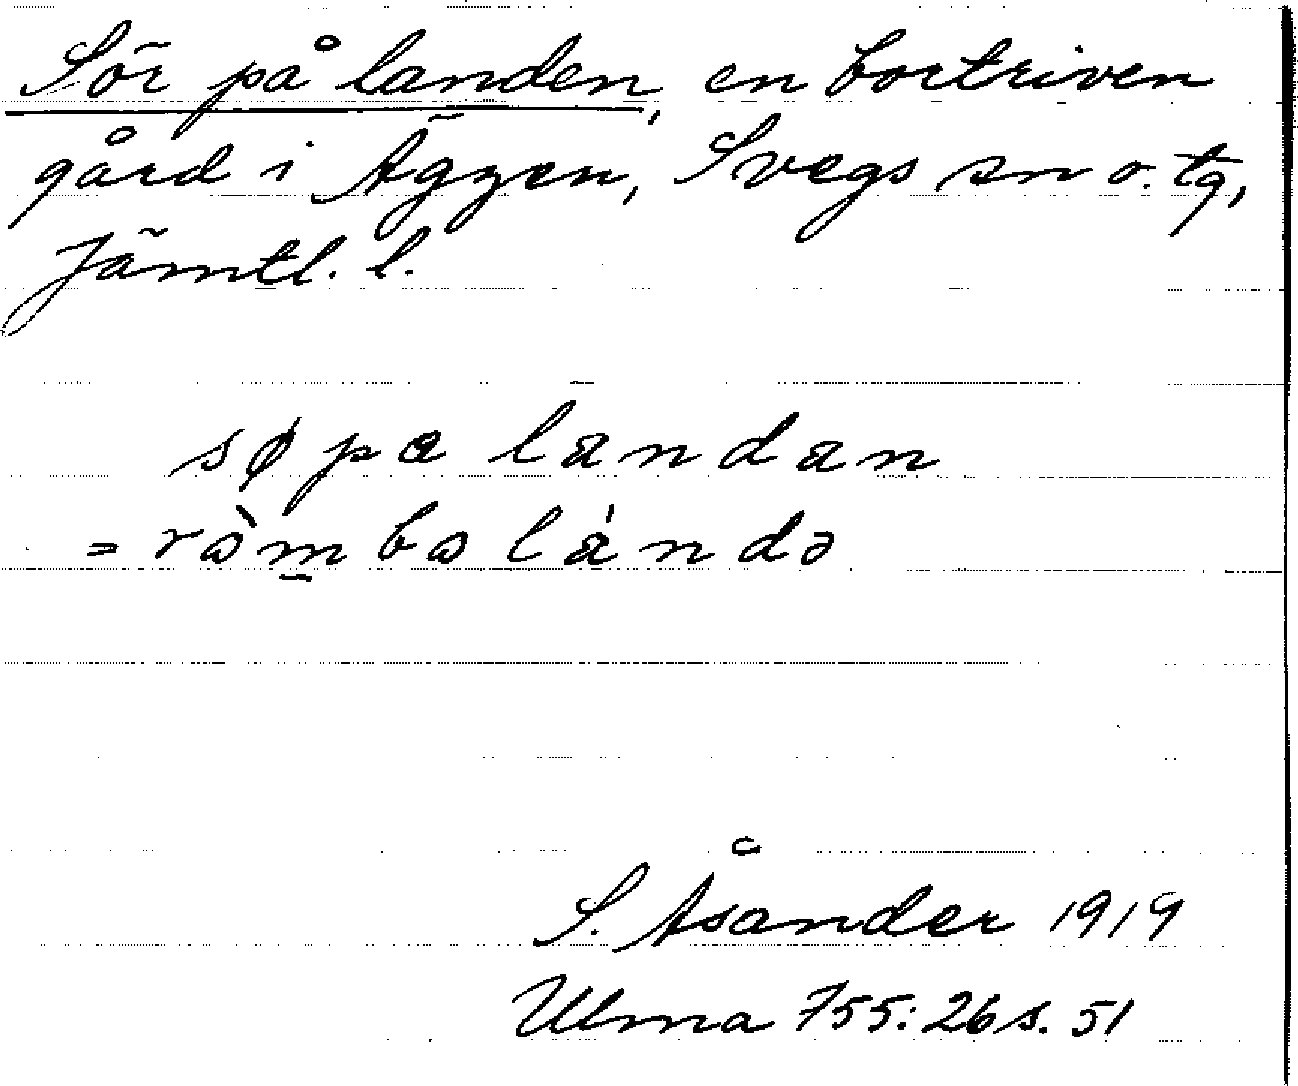 Sör på landen, en bortriven
gård i Äggen, Svegs sn o. tg,
Jämtl. l.
søpa landan
= ràm̱ba lándə
S. Åsander 1919
Ulma 755:26 s. 51